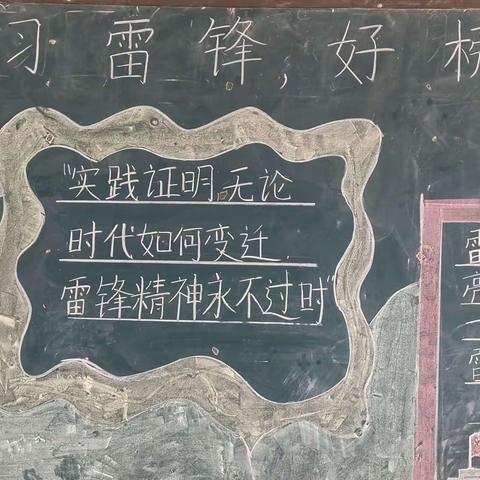 习雷锋,好
"实践证明,无论
时代如何变迁,
雷锋精神永不过时"
雷
亮
雷